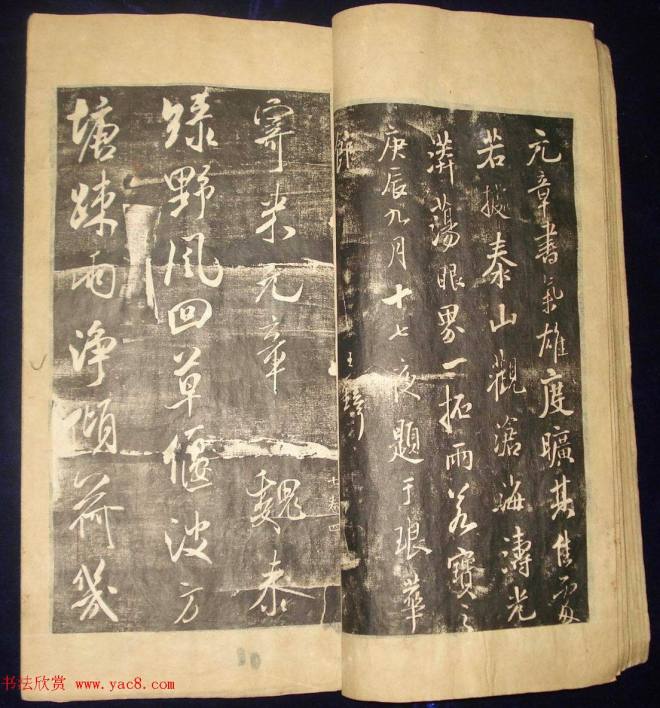 元章書氣雄度曠其佳處
若披泰山觀滄海濤光
漭蕩眼界一拓兩美寶之
庚辰九月十七夜題于琅華
館 王鐸
十卷四
寄米元章 魏泰
綠野風回草偃波方
塘疎雨淨傾荷幾
书法欣赏 www.yac8.com